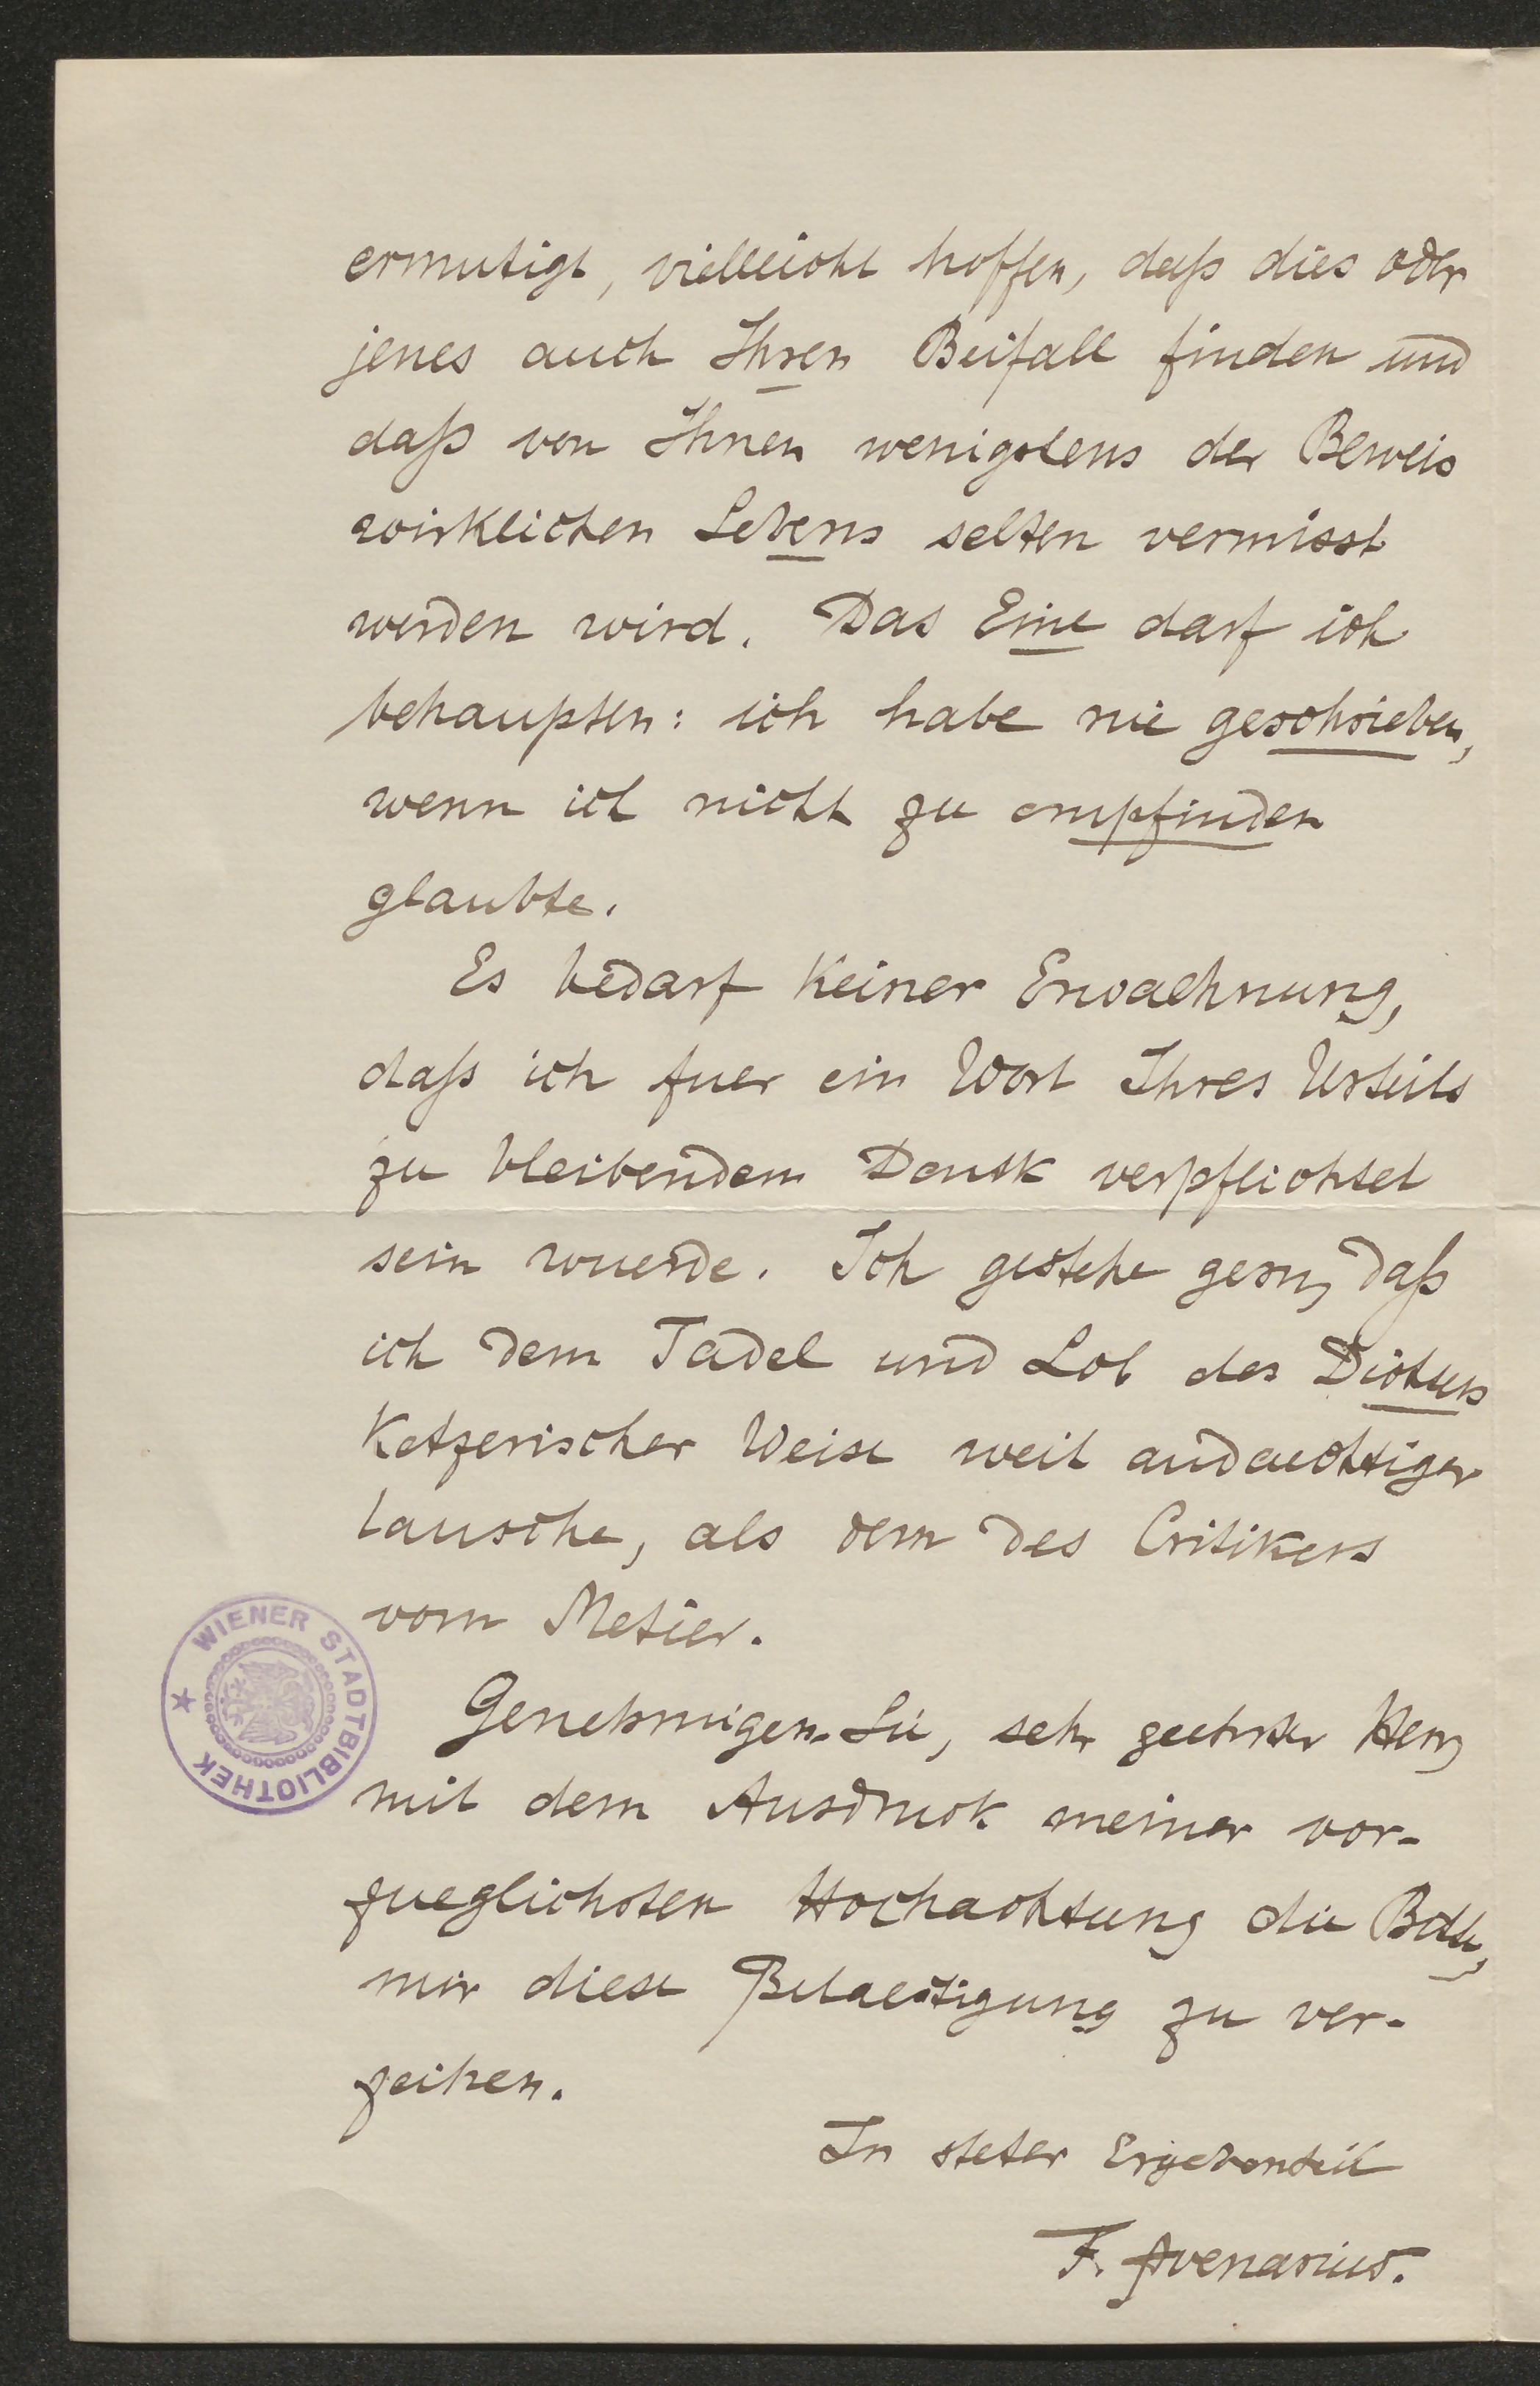 ermutigt, vielleicht hoffen, daß dies oder
jenes auch Ihren Beifall finden und
daß von Ihnen wenigstens der Beweis
wirklichen Lebens selten vermisst
werden wird. Das Eine darf ich
behaupten: ich habe nie geschrieben,
wenn ich nicht zu empfinden
glaubte.
Es bedarf keiner Erwaehnung,
daß ich fuer ein Wort Ihres Urteils
zu bleibendem Dank verpflichtet
sein wuerde. Ich gestehe gern, daß
ich dem Tadel und Lob des Dichters
ketzerischer Weise weit andaechtiger
lausche, als dem des Critikers
vom Metier.
Genehmigen Sie, sehr geehrter Herr,
mit dem Ausdruck meiner vor-
zueglichsten Hochachtung die Bitte,
mir diese Belaestigung zu ver-
zeihen.
In steter Ergebenheit
F. Avenarius.
WIENER STADTBIBLIOTHEK